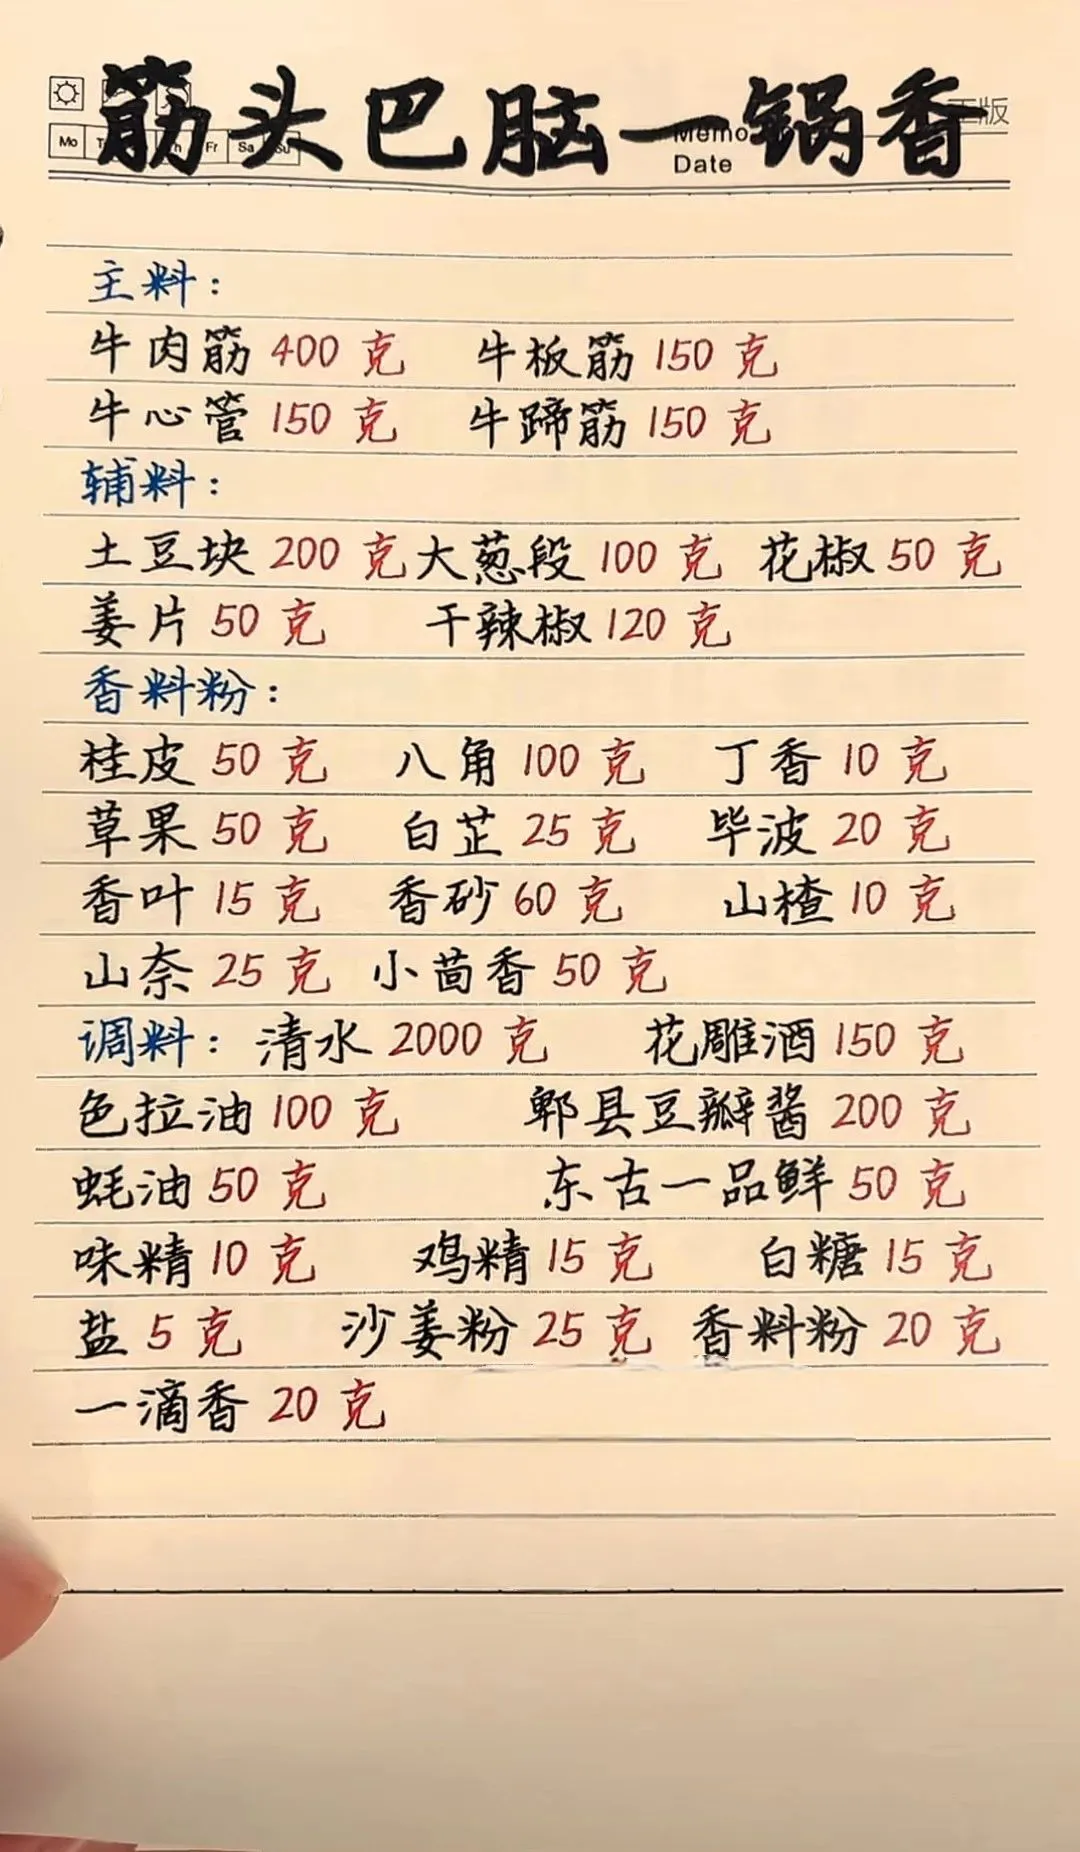 筋头巴脑一锅香
正版
Mo Fr Sa Su
Memo
Date
主料：
牛肉筋 400 克 牛板筋 150 克
牛心管 150 克 牛蹄筋 150 克
辅料：
土豆块 200 克 大葱段 100 克 花椒 50 克
姜片 50 克 干辣椒 120 克
香料粉：
桂皮 50 克 八角 100 克 丁香 10 克
草果 50 克 白芷 25 克 毕波 20 克
香叶 15 克 香砂 60 克 山楂 10 克
山奈 25 克 小茴香 50 克
调料：清水 2000 克 花雕酒 150 克
色拉油 100 克 郫县豆瓣酱 200 克
蚝油 50 克 东古一品鲜 50 克
味精 10 克 鸡精 15 克 白糖 15 克
盐 5 克 沙姜粉 25 克 香料粉 20 克
一滴香 20 克